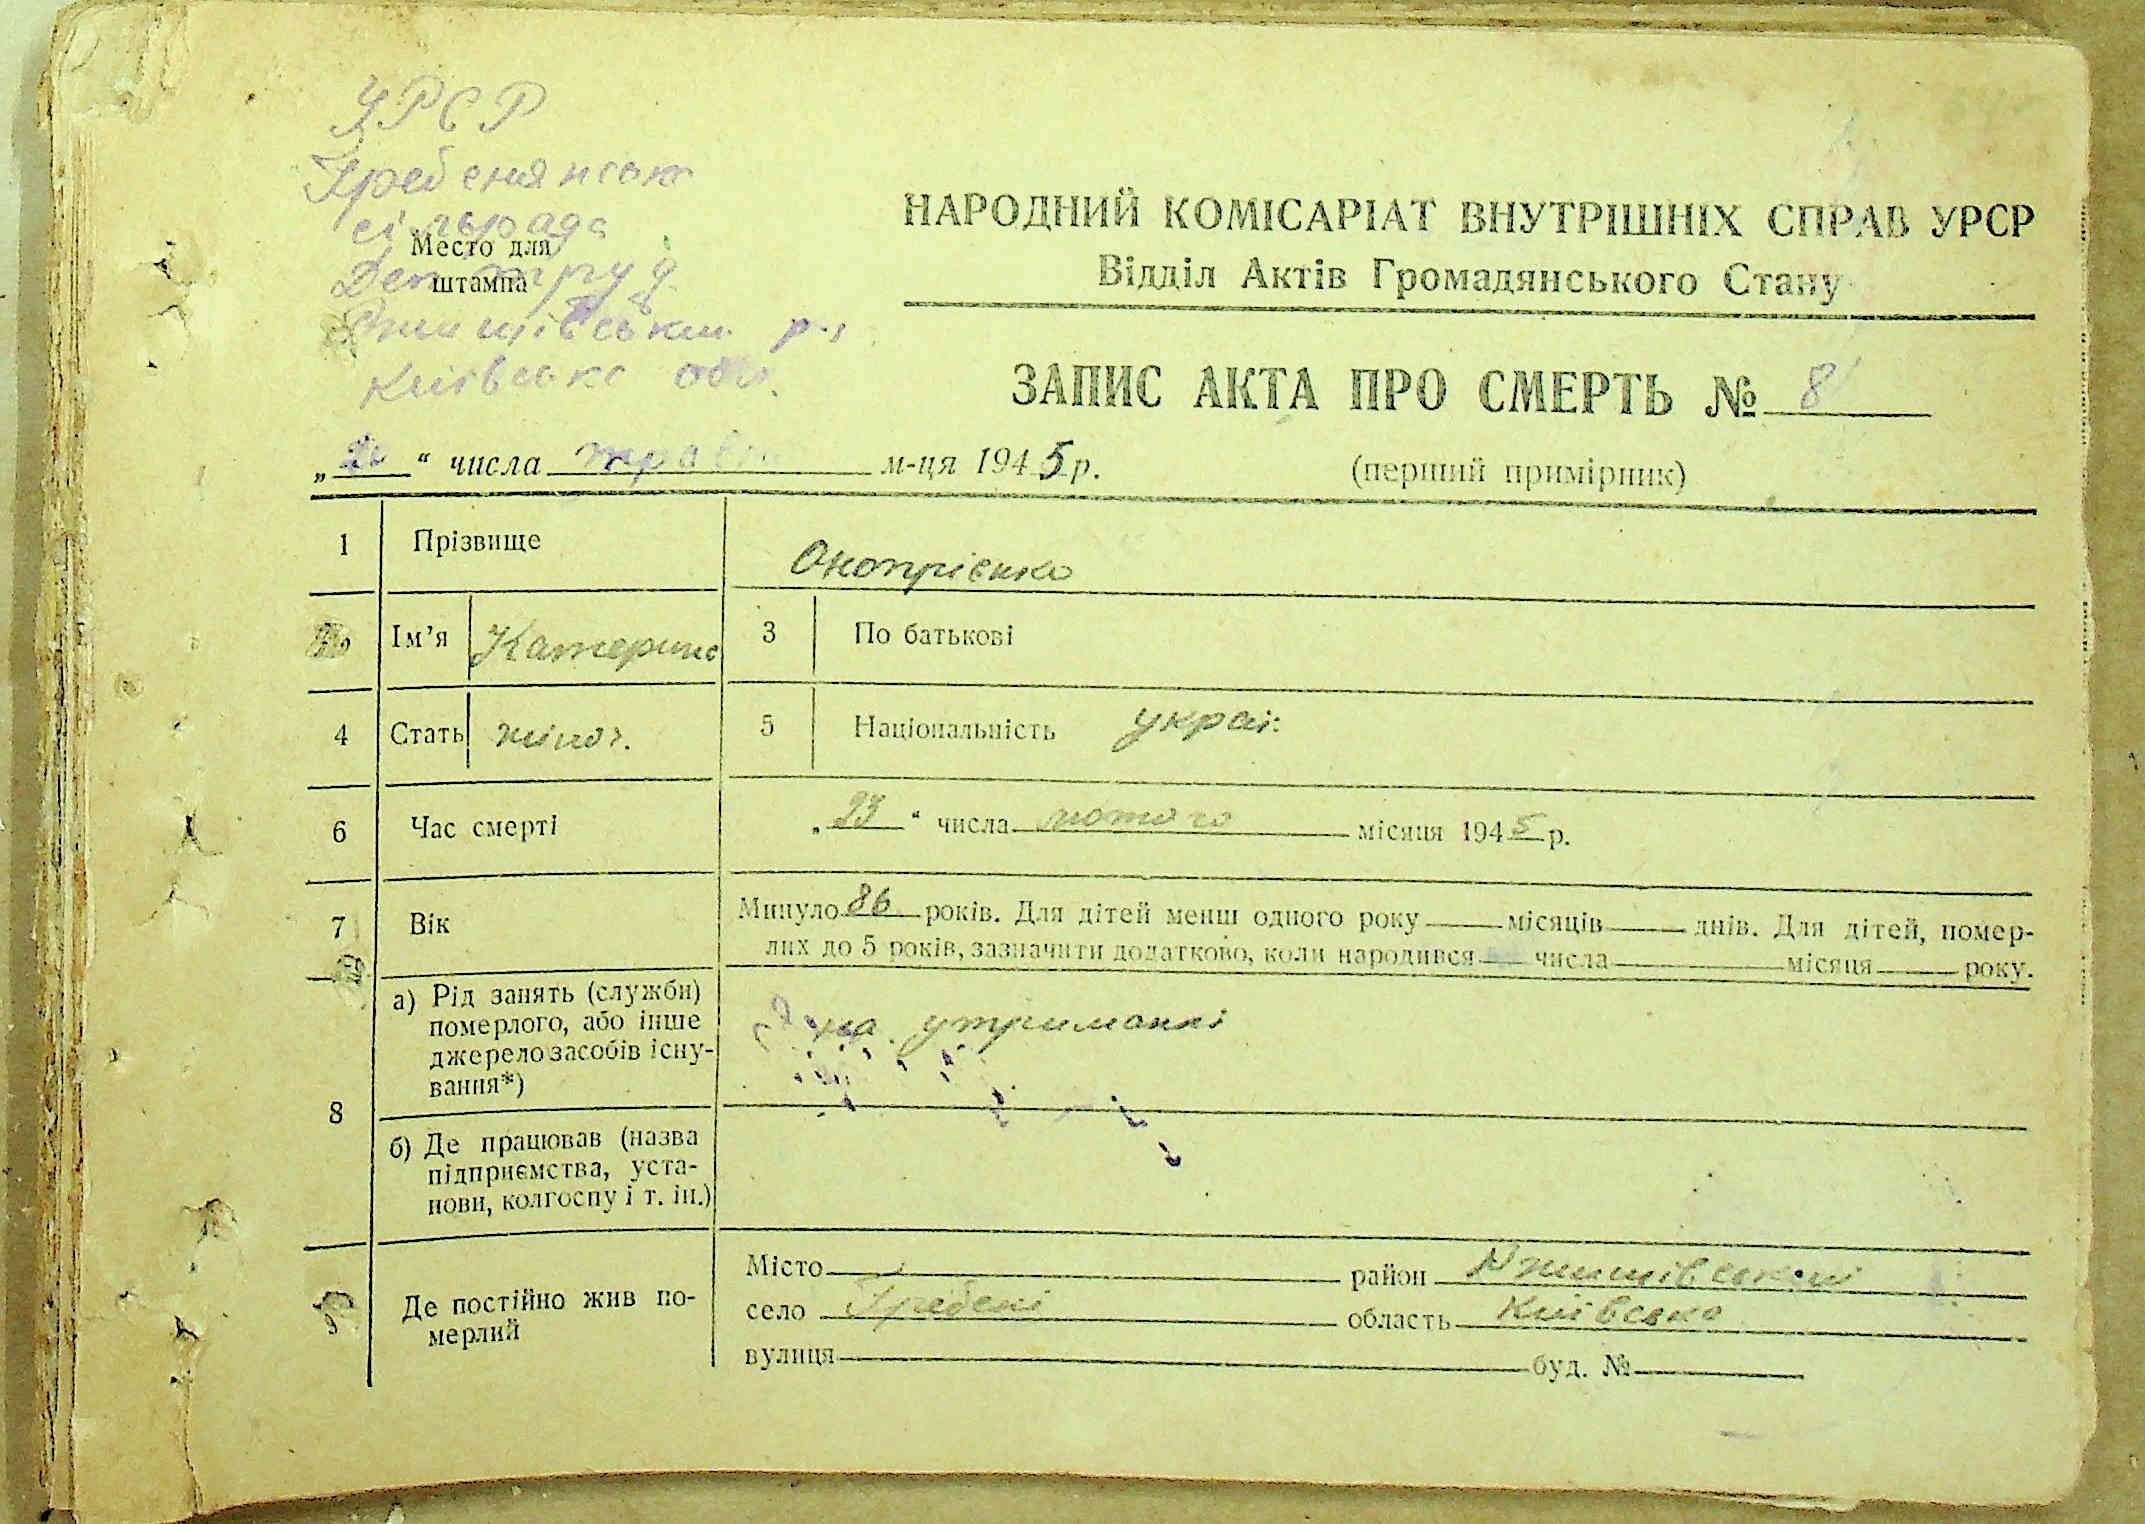 УРСР
Гребенянська
сільрада
Место для
штампа
Деп. труд.
Ржищівськи р.
Київсько обл.
НАРОДНИЙ КОМІСАРІАТ ВНУТРІШНІХ СПРАВ УРСР
Відділ Актів Громадянського Стану
ЗАПИС АКТА ПРО СМЕРТЬ № 8
„ “ числа трав м-ця 1945 р. (перший примірник)
1 Прізвище Онопрієнко
Ім’я Катерина 3 По батькові
4 Стать жіноч. 5 Національність украї.
6 Час смерті „23“ числа лютого місяця 1945 р.
7 Вік Минуло 86 років. Для дітей менш одного року місяців днів. Для дітей, помер-
лих до 5 років, зазначити додатково, коли народився числа місяця року.
8 а) Рід занять (служби)
померлого, або інше
джерело засобів існу-
вання*)
на утриманні
б) Де працював (назва
підприємства, уста-
нови, колгоспу і т. ін.)
9 Де постійно жив по-
мерлий
Місто район Ржищівський
село Гребені область Київсько
вулиця буд. №